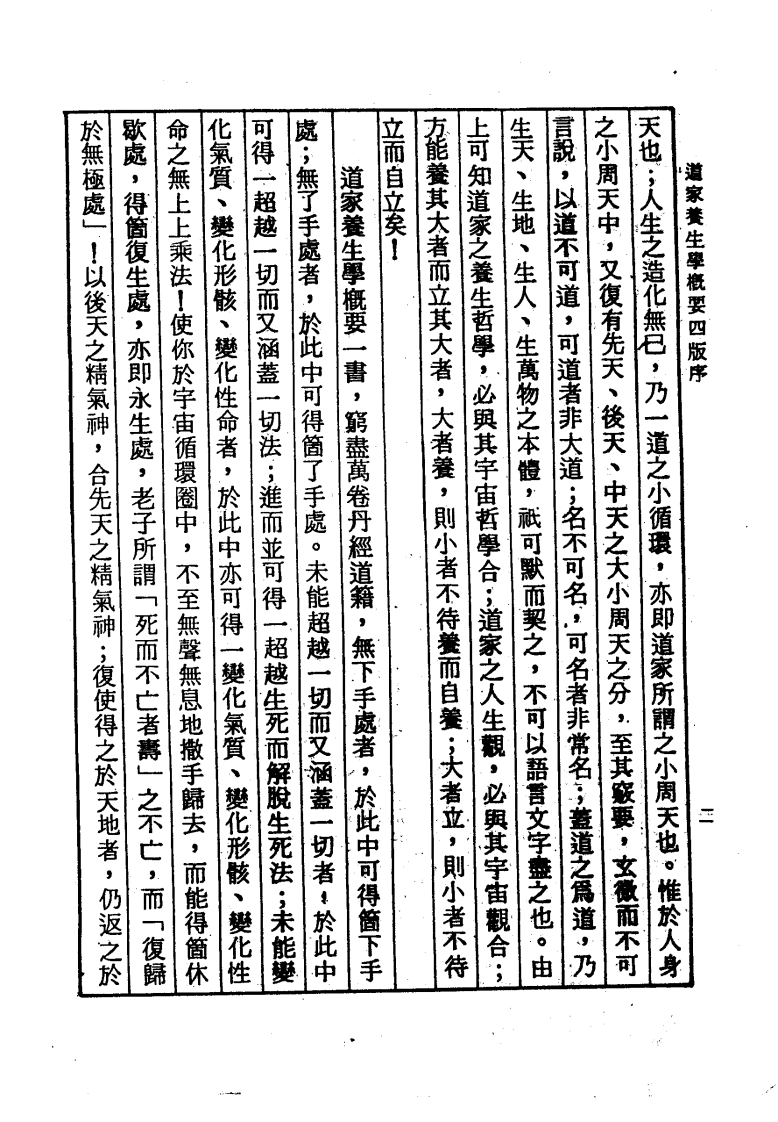 道家養生學概要四版序
二
天也；人生之造化無已，乃一道之小循環，亦即道家所謂之小周天也。惟於人身
之小周天中，又復有先天、後天、中天之大小周天之分，至其竅要，玄微而不可
言說，以道不可道，可道者非大道；名不可名，可名者非常名；蓋道之爲道，乃
生天、生地、生人、生萬物之本體，祇可默而契之，不可以語言文字盡之也。由
上可知道家之養生哲學，必與其宇宙哲學合；道家之人生觀，必與其宇宙觀合；
方能養其大者而立其大者，大者養，則小者不待養而自養；大者立，則小者不待
立而自立矣！
道家養生學概要一書，窮盡萬卷丹經道籍，無下手處者，於此中可得箇下手
處；無了手處者，於此中可得箇了手處。未能超越一切而又涵蓋一切者，於此中
可得一超越一切而又涵蓋一切法；進而並可得一超越生死而解脫生死法；未能變
化氣質、變化形骸、變化性命者，於此中亦可得一變化氣質、變化形骸、變化性
命之無上上乘法！使你於宇宙循環圈中，不至無聲無息地撒手歸去，而能得箇休
歇處，得箇復生處，亦即永生處，老子所謂「死而不亡者壽」之不亡，而「復歸
於無極處」！以後天之精氣神，合先天之精氣神；復使得之於天地者，仍返之於